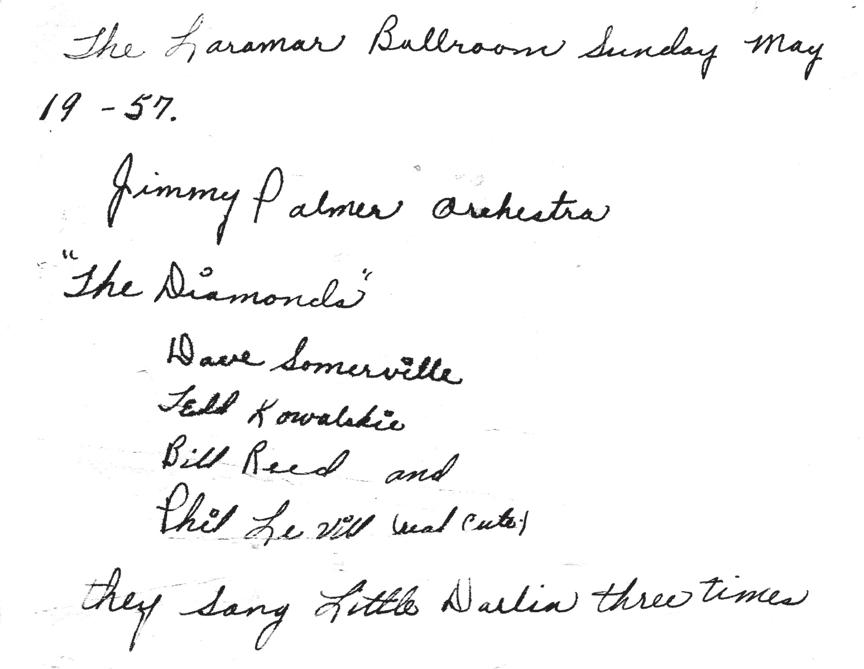 The Laramar Ballroom Sunday May
19 - 57.
Jimmy Palmer Orchestra
"The Diamonds"
Dave Somerville
Tedd Kowalskie
Bill Reed and
Phil Le Vill (real cute)
they sang Little Darlin three times